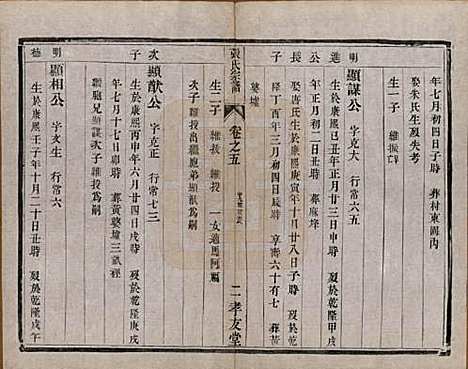 年七月初四日子時 葬村東園內
娶朱氏生歿失考
生一子 維振亡
明進公長
顯謀公 字克大 行常六五
生於康熙己丑年正月廿三日申時 歿於乾隆甲戌
年正月初二日丑時 葬麻垾
娶唐氏生於康熙庚寅年十月廿八日子時 歿於乾隆
丁酉年三月初四日辰時 享壽六十有七 葬黃
婆墟
張氏宗譜 卷之五 二 孝友堂
生二子 維殺 維投 一女適馬阿
次子維投出繼胞弟顯猷爲嗣
次子
顯猷公 字克正 行常七三
生於康熙丙申年六月廿四日戌時 歿於乾隆庚戌
年七月十七日卯時 葬黃婆墟三畝裡
繼胞兄顯謀次子維投爲嗣
明德
顯相公 字爻生 行常六
生於康熙壬子年十月二十日丑時 歿於乾隆戊午